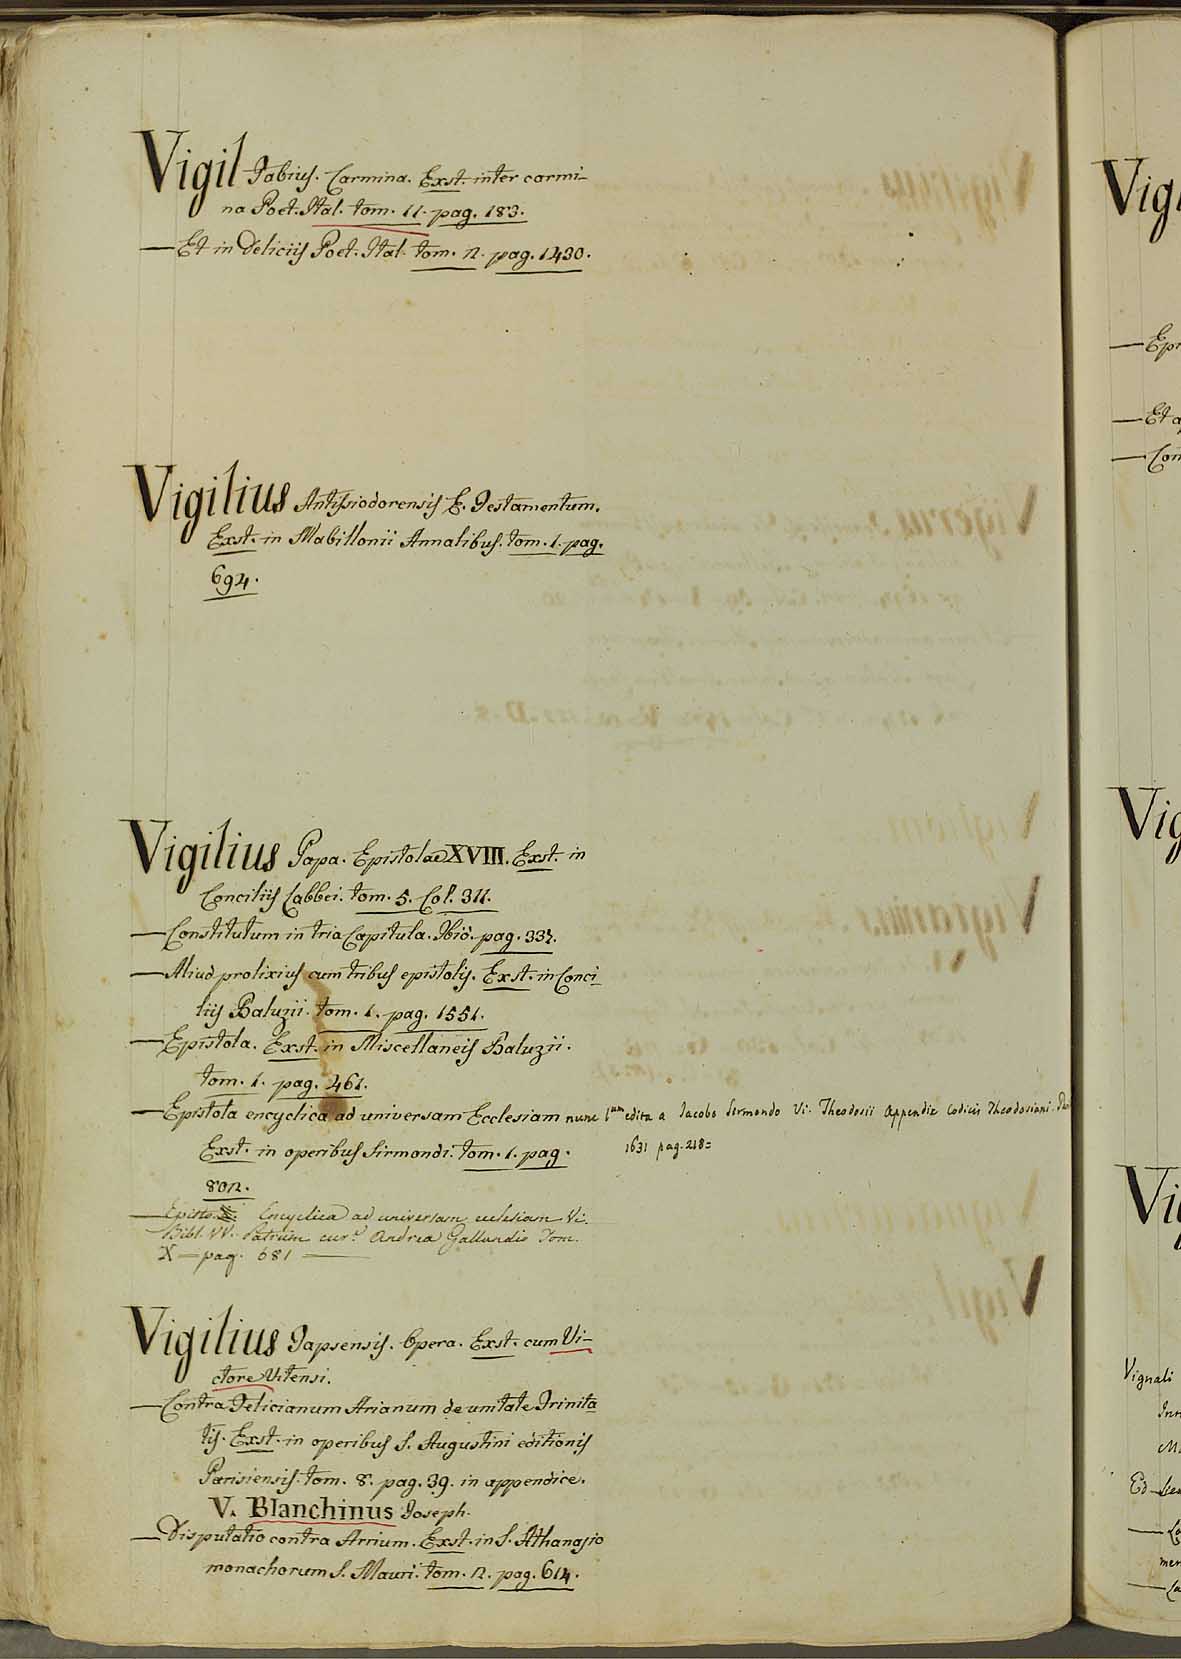 Vigil Fabius. Carmina. Exst. inter carmi-
na Poet. Ital. tom. 11. pag. 183.
— Et in Deliciis Poet. Ital. tom. 2. pag. 1430.
Vigilius Antissiodorensis E. Testamentum.
Exst. in Mabillonii Annalibus. tom. 1. pag.
694.
Vigilius Papa. Epistolae XVIII. Exst. in
Conciliis Labbei. tom. 5. Col. 311.
— Constitutum in tria Capitula. Ibid. pag. 337.
— Aliud prolixius cum tribus epistolis. Exst. in Conci-
liis Baluzii. tom. 1. pag. 1551.
— Epistola. Exst. in Miscellaneis Baluzii.
tom. 1. pag. 461.
— Epistola encyclica ad universam Ecclesiam nunc 1um edita a Jacobo Sirmondo Vi. Theodosii Appendix Codicis Theodosiani.
1631 pag. 218=
Exst. in operibus Sirmondi. tom. 1. pag.
802.
— Encyclica ad universam ecclesiam Vi.
Bibl. VV. Patrum cur. Andrea Gallandio Tom.
X — pag. 681 —
Vigilius Tapsensis. Opera. Exst. cum Vi-
ctore Vitensi.
— Contra Felicianum Arianum de unitate Trinita
tis. Exst. in operibus S. Augustini editionis
Parisiensis. tom. 8. pag. 39. in appendice.
V. Blanchinus Joseph.
— Disputatio contra Arrium. Exst. in S. Athanasio
monachorum S. Mauri. tom. 2. pag. 614.
Vig
— Epi
— Et a
— Con
Vig
Vi
Vignali
Inn
Ed
mer